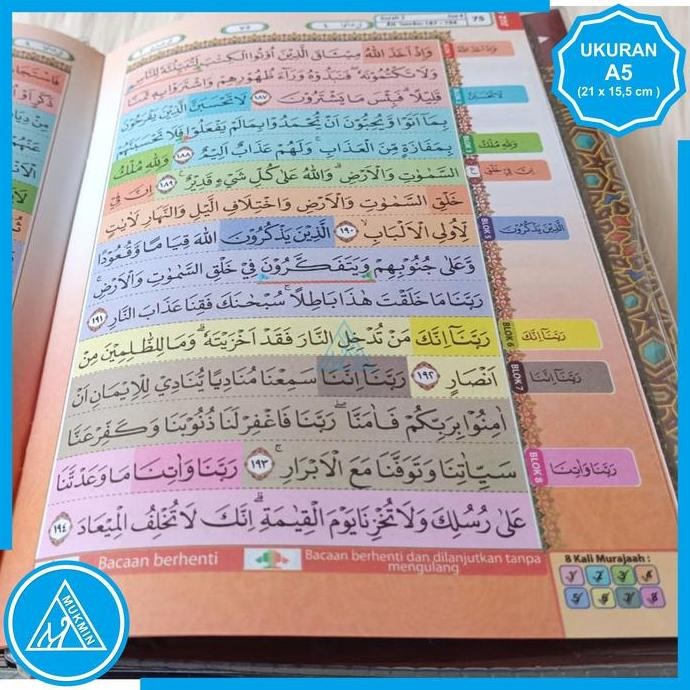 UKURAN
A5
(21 x 15,5 cm )
75
٧٥
وَاِذْ اَخَذَ اللّٰهُ مِيْثَاقَ الَّذِيْنَ اُوْتُوا الْكِتٰبَ لَتُبَيِّنُنَّهٗ لِلنَّاسِ
وَلَا تَكْتُمُوْنَهٗ ۖ فَنَبَذُوْهُ وَرَاۤءَ ظُهُوْرِهِمْ وَاشْتَرَوْا بِهٖ ثَمَنًا
قَلِيْلًا ۗ فَبِئْسَ مَا يَشْتَرُوْنَ ١٨٧ لَا تَحْسَبَنَّ الَّذِيْنَ يَفْرَحُوْنَ
بِمَآ اَتَوْا وَّيُحِبُّوْنَ اَنْ يُّحْمَدُوْا بِمَا لَمْ يَفْعَلُوْا فَلَا تَحْسَبَنَّهُمْ
بِمَفَازَةٍ مِّنَ الْعَذَابِ ۚ وَلَهُمْ عَذَابٌ اَلِيْمٌ ١٨٨ وَلِلّٰهِ مُلْكُ
السَّمٰوٰتِ وَالْاَرْضِ ۗ وَاللّٰهُ عَلٰى كُلِّ شَيْءٍ قَدِيْرٌ ١٨٩ اِنَّ فِيْ
خَلْقِ السَّمٰوٰتِ وَالْاَرْضِ وَاخْتِلَافِ الَّيْلِ وَالنَّهَارِ لَاٰيٰتٍ
لِّاُولِى الْاَلْبَابِ ١٩٠ الَّذِيْنَ يَذْكُرُوْنَ اللّٰهَ قِيَامًا وَّقُعُوْدًا
وَّعَلٰى جُنُوْبِهِمْ وَيَتَفَكَّرُوْنَ فِيْ خَلْقِ السَّمٰوٰتِ وَالْاَرْضِ ۚ
رَبَّنَا مَا خَلَقْتَ هٰذَا بَاطِلًا ۚ سُبْحٰنَكَ فَقِنَا عَذَابَ النَّارِ ١٩١
رَبَّنَآ اِنَّكَ مَنْ تُدْخِلِ النَّارَ فَقَدْ اَخْزَيْتَهٗ ۗ وَمَا لِلظّٰلِمِيْنَ مِنْ
اَنْصَارٍ ١٩٢ رَبَّنَآ اِنَّنَا سَمِعْنَا مُنَادِيًا يُّنَادِيْ لِلْاِيْمَانِ اَنْ
اٰمِنُوْا بِرَبِّكُمْ فَاٰمَنَّا ۖ رَبَّنَا فَاغْفِرْ لَنَا ذُنُوْبَنَا وَكَفِّرْ عَنَّا
سَيِّاٰتِنَا وَتَوَفَّنَا مَعَ الْاَبْرَارِ ۚ ١٩٣ رَبَّنَا وَاٰتِنَا مَا وَعَدْتَّنَا
عَلٰى رُسُلِكَ وَلَا تُخْزِنَا يَوْمَ الْقِيٰمَةِ ۗ اِنَّكَ لَا تُخْلِفُ الْمِيْعَادَ ١٩٤
وَاِذْ اَخَذَ اللّٰهُ
لَا تَحْسَبَنَّ
وَلِلّٰهِ مُلْكُ
اِنَّ فِيْ خَلْقِ
BLOK 5
الَّذِيْنَ يَذْكُرُوْنَ
BLOK 6
رَبَّنَآ اِنَّكَ
BLOK 7
رَبَّنَآ اِنَّنَا
BLOK 8
رَبَّنَا وَاٰتِنَا
Bacaan berhenti
Bacaan berhenti dan dilanjutkan tanpa
mengulang
8 Kali Murajaah :
1 2 3 4
5 6 7 8
MUKMIN